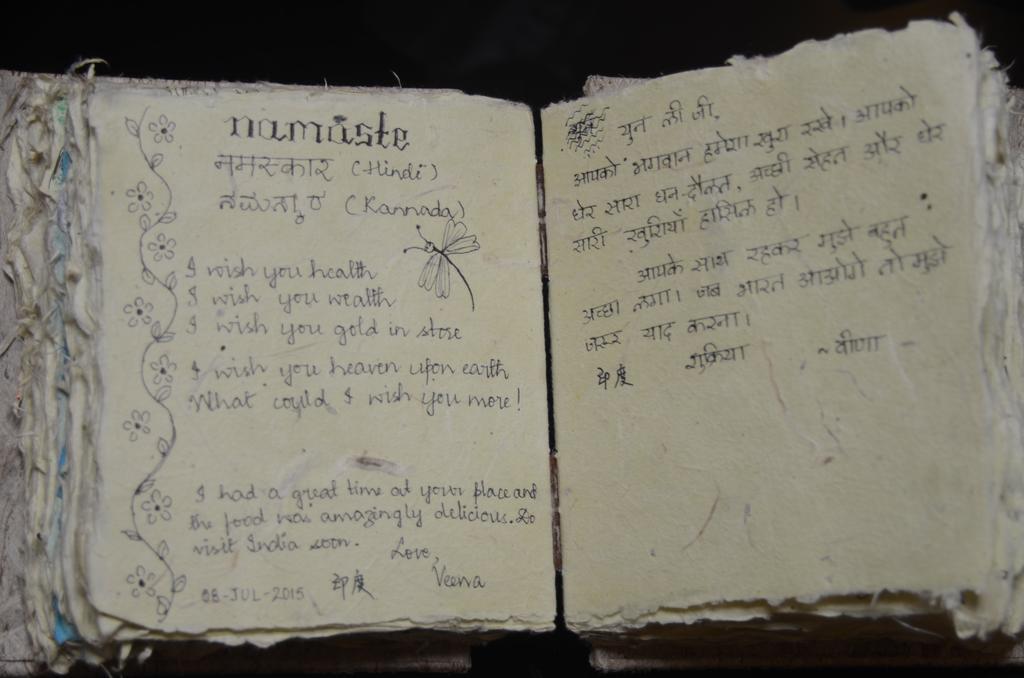 namaste
नमस्कार (Hindi)
ನಮಸ್ಕಾರ (Kannada)
I wish you health
I wish you wealth
I wish you gold in store
I wish you heaven upon earth
What could I wish you more!
I had a great time at your place and
the food was amazingly delicious. Do
visit India soon.
Love,
Veena
08-JUL-2015 印度
युन ली जी,
आपको भगवान हमेशा खुश रखे। आपको
धेर सारा धन-दौलत, अच्छी सेहत और धेर
सारी खुशियाँ हासिल हो।
आपके साथ रहकर मुझे बहुत
अच्छा लगा। जब भारत आओगे तो मुझे
जरूर याद करना।
शुक्रिया ~वीणा
印度